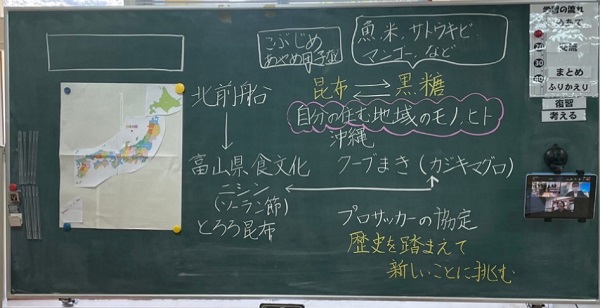 こぶじめ
あやめ団子
魚、米、サトウキビ、
マンゴー、など
昆布 ⇄ 黒糖
自分の住む地域のモノ、ヒト
北前船
↓
富山県 食文化
ニシン
(ソーラン節)
とろろ昆布
沖縄
クーブまき (カジキマグロ)
プロサッカーの協定
歴史を踏まえて
新しいことに挑む
学習の流れ
まとめ
ふりかえり
復習
考える